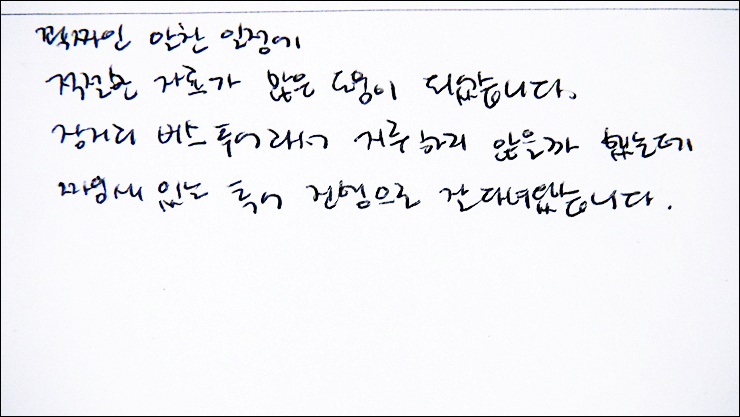 꽉짜인 알찬 일정에
적절한 자료가 많은 도움이 되었습니다.
장거리 버스투어라서 지루하지 않을까 했는데
짜임새 있는 투어 진행으로 잘 다녀왔습니다.